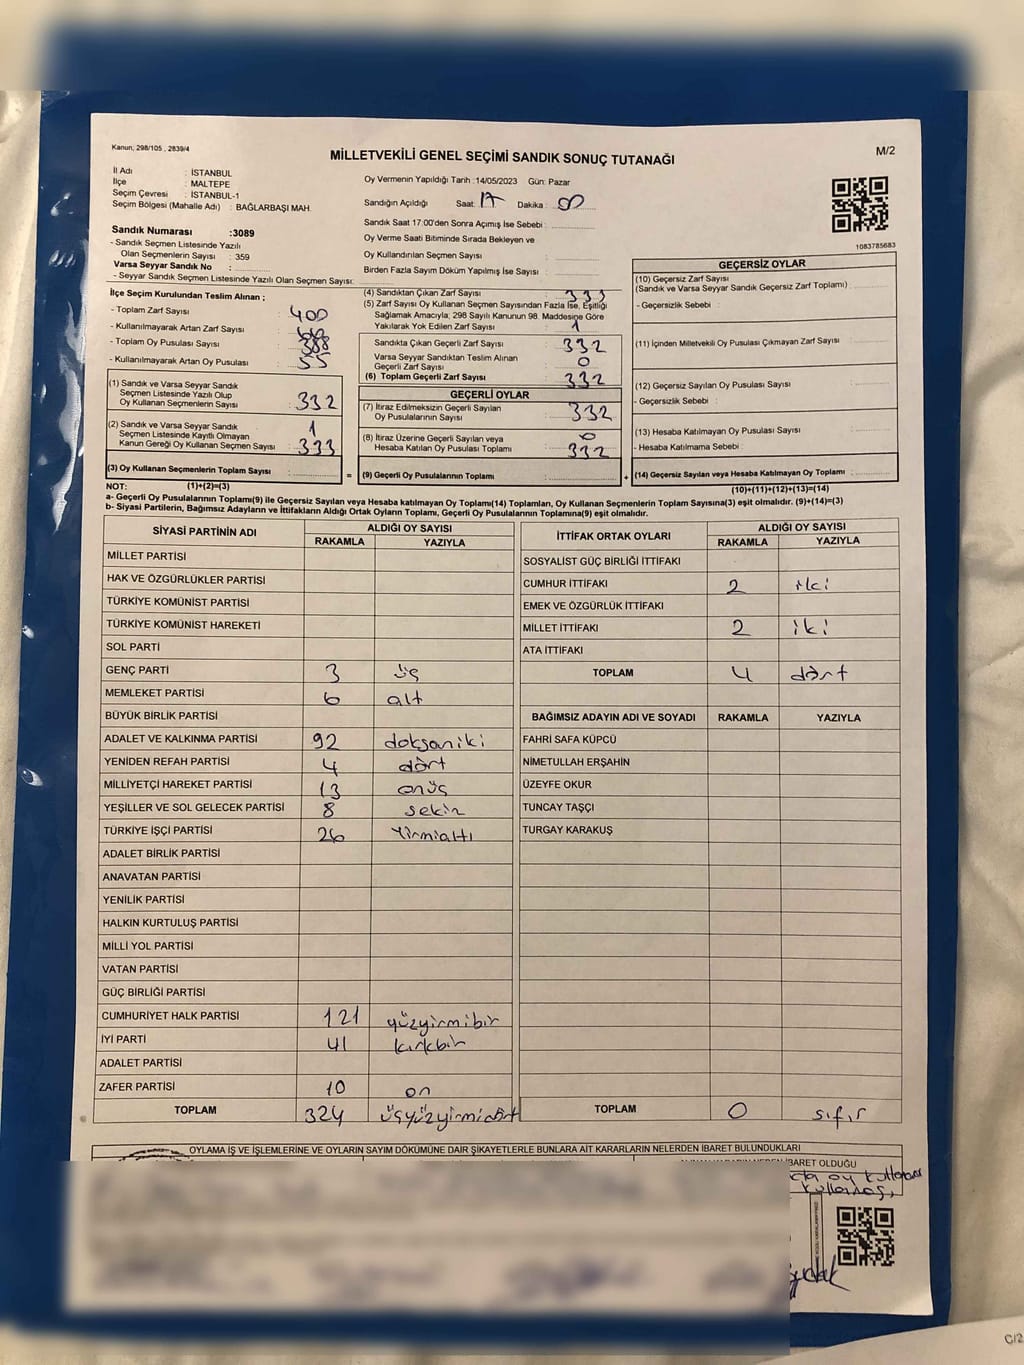 Kanun; 298/105 , 2839/4
MİLLETVEKİLİ GENEL SEÇİMİ SANDIK SONUÇ TUTANAĞI
M/2
İl Adı : İSTANBUL
İlçe : MALTEPE
Seçim Çevresi : İSTANBUL-1
Seçim Bölgesi (Mahalle Adı) : BAĞLARBAŞI MAH.
Sandık Numarası :3089
- Sandık Seçmen Listesinde Yazılı
Olan Seçmenlerin Sayısı : 359
Varsa Seyyar Sandık No :
- Seyyar Sandık Seçmen Listesinde Yazılı Olan Seçmen Sayısı:
Oy Vermenin Yapıldığı Tarih :14/05/2023 Gün: Pazar
Sandığın Açıldığı Saat: 17 Dakika : 00
Sandık Saat 17:00'den Sonra Açımış İse Sebebi :
Oy Verme Saati Bitiminde Sırada Bekleyen ve
Oy Kullandırılan Seçmen Sayısı :
Birden Fazla Sayım Döküm Yapılmış İse Sayısı :
1083785683
İlçe Seçim Kurulundan Teslim Alınan ;
- Toplam Zarf Sayısı : 400
- Kullanılmayarak Artan Zarf Sayısı :
- Toplam Oy Pusulası Sayısı : 388
- Kullanılmayarak Artan Oy Pusulası : 55
(1) Sandık ve Varsa Seyyar Sandık
Seçmen Listesinde Yazılı Olup
Oy Kullanan Seçmenlerin Sayısı : 332
(2) Sandık ve Varsa Seyyar Sandık
Seçmen Listesinde Kayıtlı Olmayan 1
Kanun Gereği Oy Kullanan Seçmen Sayısı : 333
(3) Oy Kullanan Seçmenlerin Toplam Sayısı :
(4) Sandıktan Çıkan Zarf Sayısı : 333
(5) Zarf Sayısı Oy Kullanan Seçmen Sayısından Fazla İse, Eşitliği
Sağlamak Amacıyla; 298 Sayılı Kanunun 98. Maddesine Göre
Yakılarak Yok Edilen Zarf Sayısı : 1
Sandıkta Çıkan Geçerli Zarf Sayısı : 332
Varsa Seyyar Sandıktan Teslim Alınan
Geçerli Zarf Sayısı : 0
(6) Toplam Geçerli Zarf Sayısı : 332
GEÇERLİ OYLAR
(7) İtiraz Edilmeksizin Geçerli Sayılan
Oy Pusulalarının Sayısı : 332
(8) İtiraz Üzerine Geçerli Sayılan veya 0
Hesaba Katılan Oy Pusulası Toplamı : 332
= (9) Geçerli Oy Pusulalarının Toplamı :
GEÇERSİZ OYLAR
(10) Geçersiz Zarf Sayısı
(Sandık ve Varsa Seyyar Sandık Geçersiz Zarf Toplamı) :
- Geçersizlik Sebebi :
(11) İçinden Milletvekili Oy Pusulası Çıkmayan Zarf Sayısı :
(12) Geçersiz Sayılan Oy Pusulası Sayısı :
- Geçersizlik Sebebi :
(13) Hesaba Katılmayan Oy Pusulası Sayısı :
- Hesaba Katılmama Sebebi :
+ (14) Geçersiz Sayılan veya Hesaba Katılmayan Oy Toplamı :
NOT: (1)+(2)=(3)
(10)+(11)+(12)+(13)=(14)
a- Geçerli Oy Pusulalarının Toplamı(9) ile Geçersiz Sayılan veya Hesaba katılmayan Oy Toplamı(14) Toplamları, Oy Kullanan Seçmenlerin Toplam Sayısına(3) eşit olmalıdır. (9)+(14)=(3)
b- Siyasi Partilerin, Bağımsız Adayların ve İttifakların Aldığı Ortak Oyların Toplamı, Geçerli Oy Pusulalarının Toplamına(9) eşit olmalıdır.
SİYASİ PARTİNİN ADI ALDIĞI OY SAYISI
RAKAMLA YAZIYLA
MİLLET PARTİSİ
HAK VE ÖZGÜRLÜKLER PARTİSİ
TÜRKİYE KOMÜNİST PARTİSİ
TÜRKİYE KOMÜNİST HAREKETİ
SOL PARTİ
GENÇ PARTİ 3 üç
MEMLEKET PARTİSİ 6 alt
BÜYÜK BİRLİK PARTİSİ
ADALET VE KALKINMA PARTİSİ 92 doksaniki
YENİDEN REFAH PARTİSİ 4 dört
MİLLİYETÇİ HAREKET PARTİSİ 13 onüç
YEŞİLLER VE SOL GELECEK PARTİSİ 8 sekiz
TÜRKİYE İŞÇİ PARTİSİ 26 Yirmialtı
ADALET BİRLİK PARTİSİ
ANAVATAN PARTİSİ
YENİLİK PARTİSİ
HALKIN KURTULUŞ PARTİSİ
MİLLİ YOL PARTİSİ
VATAN PARTİSİ
GÜÇ BİRLİĞİ PARTİSİ
CUMHURİYET HALK PARTİSİ 121 yüzyirmibir
İYİ PARTİ 41 kırkbir
ADALET PARTİSİ
ZAFER PARTİSİ 10 on
TOPLAM 324 üçyüzyirmidört
İTTİFAK ORTAK OYLARI ALDIĞI OY SAYISI
RAKAMLA YAZIYLA
SOSYALİST GÜÇ BİRLİĞİ İTTİFAKI
CUMHUR İTTİFAKI 2 iki
EMEK VE ÖZGÜRLÜK İTTİFAKI
MİLLET İTTİFAKI 2 iki
ATA İTTİFAKI
TOPLAM 4 dört
BAĞIMSIZ ADAYIN ADI VE SOYADI RAKAMLA YAZIYLA
FAHRİ SAFA KÜPCÜ
NİMETULLAH ERŞAHİN
ÜZEYFE OKUR
TUNCAY TAŞÇI
TURGAY KARAKUŞ
TOPLAM 0 sıfır
OYLAMA İŞ VE İŞLEMLERİNE VE OYLARIN SAYIM DÖKÜMÜNE DAİR ŞİKAYETLERLE BUNLARA AİT KARARLARIN NELERDEN İBARET BULUNDUKLARI
İBARET OLDUĞU
oy kullanan
C/2